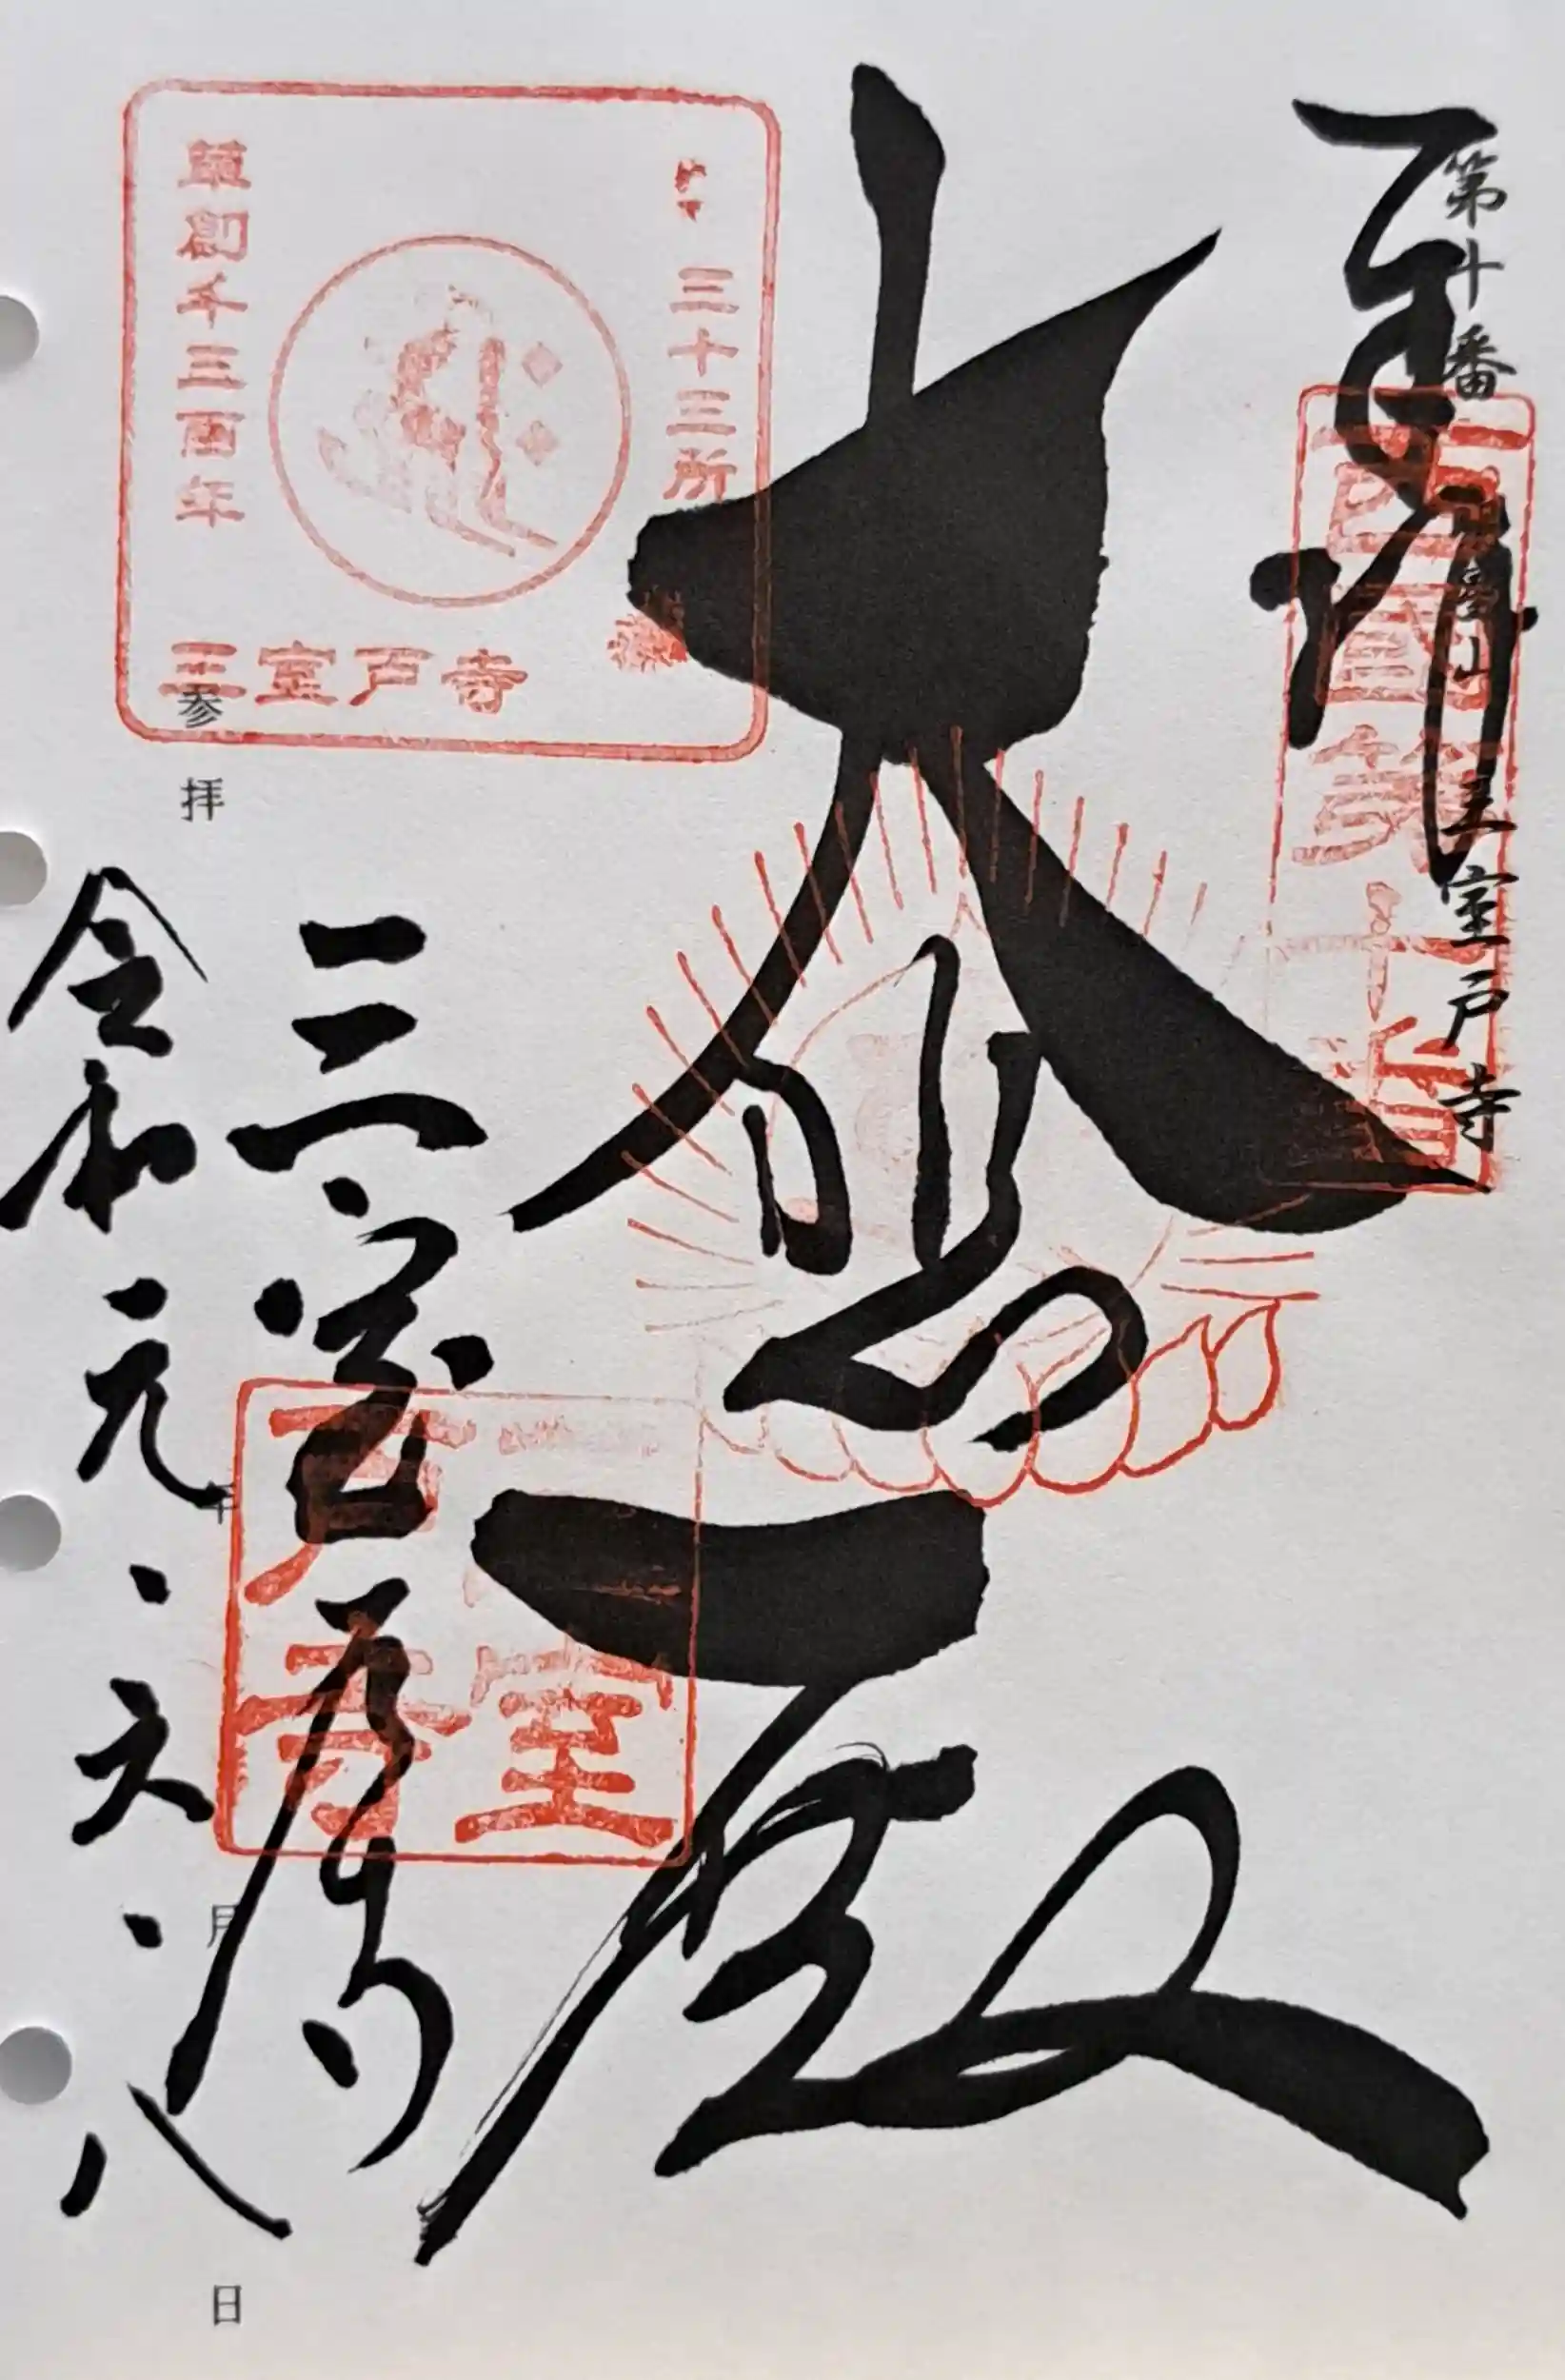 第十番
明星山
三室戸寺
奉拝
西國第十番
大悲殿
三十三所
草創千三百年
三室戸寺
三室戸寺
室戸寺
参拝
年
月
日
令和元、六、八